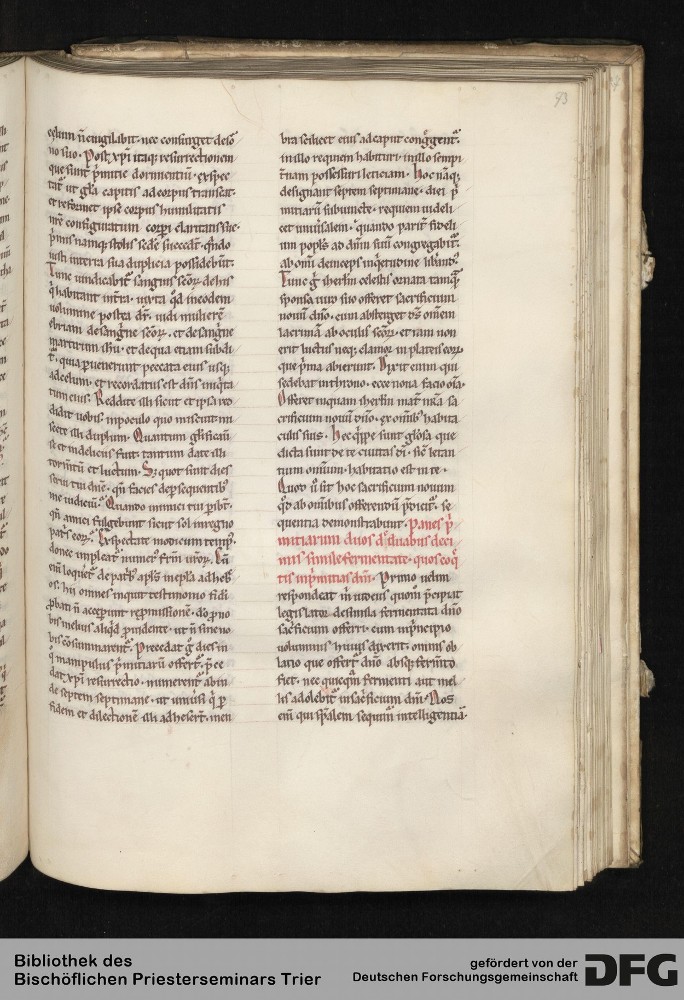 93
no suo. Post xpi itaq; resurrectionem
que sunt p̄mitie dormientiū. expec
et reformet ipse corpus humilitatis
nr̄e configuratum corpori claritatis sue.
iusti in terra sua duplicia possidebūt.
Tunc uindicabit᷑ sanguis scōꝝ de his
volumine postea dr̄. uidi mulierē
ebriam de sangⁱne scōꝝ. et de sangⁱne
martirum ihū. et de qua etiam subdi
t᷑. quia ꝑuenerunt peccata eius usq;
ad celum. et recordatus est dn̄s iniqⁱta
tum eius. Reddite illi sicut et ipsa red
didit uobis. in poculo quo miscuit mi
scete illi duplum. Quantum gl̄ificauit
se et in deliciis fuit. tantum date illi
tormtū et luctum. Sꝫ quot sunt dies
serui tui dn̄e. qn̄ facies de ꝑsequentibꝰ
me iudiciū. Quando inimici tui ꝑibt᷑.
qn̄ amici fulgebunt sicut sol in regno
pat̄s eoꝝ. Expectate modicum tempꝰ.
donec impleat᷑ numerꝰ frm̄ ur̄oꝝ. Un̄
os. hii omnes inquit testimonio fidi
ꝓbati n̄ acceperunt repromissionē. dō ꝓ no
bis melius aliqd̄ ꝓuidente. ut n̄ sine no
bis cōsummarent᷑. Precedat g° dies in
q° manipulus p̄mitiarū offert᷑. p̄ce
dat xpi resurrectio. numerent᷑ ab in
de septem septimane. ut uniūsi qⁱ ꝑ
fidem et dilectionē illi adhesert̄. mem
bra scilicet eius ad caput congͤgent᷑.
in illo requiem habituri. in illo sempi
t̄nam possessuri leticiam. Hoc naq;
designant septem septimane. diei p̄
mitiarū subiuncte. requiem uideli
cet uniuersalem. quando parit᷑ fideli
um popl̄s ad dn̄m suū congregabit᷑.
ab omi deinceps inqⁱetudine libandꝰ.
Tunc g° iherl̄m celestis ornata tamqᵃ
sponsa uiro suo offeret sacrificium
nouū dn̄o. cum absterget dꝰs omem
lacrimā ab oculis scōꝝ. et iam non
erit luctus neq; clamor in plateis eoꝝ
que pⁱma abierunt. Dixit enim qui
sedebat in throno. ecce noua facio om̄ia.
Offeret inquam iherl̄m mat᷑ nr̄a sa
crificium nouū dn̄o. ex omibꝰ habita
culis suis. Hec qⁱppe sunt gl̄osa que
dicta sunt de te ciuitas di. sic̄ letan
tium omium. habitatio est in te.
Quod u° sit hoc sacrificium nouum
qd̄ ab omibus offerendū p̄dicit᷑. se
quentia demonstrabunt. Panes p̄
mitiarum duos de duabus deci
mis simile fermentate. quos coq
tis in p̄mitias dn̄i. Primo uelim
respondeat m̄ iudeus quom̄ p̄cipiat
legislator de simila fermentata dn̄o
sac̄ficium offerri. cum in p̄ncipio
voluminis huius dixerit. omnis ob
latio que offert᷑ dn̄o absq; fermto
fiet. nec quicqᵃm fermenti aut mel
lis adolebit᷑ in sac̄ficium dn̄i. Nos
em̄ qui spalem sequim᷑ intelligentiā.
Bibliothek des
Bischöflichen Priesterseminars Trier
gefördert von der
Deutschen Forschungsgemeinschaft
DFG